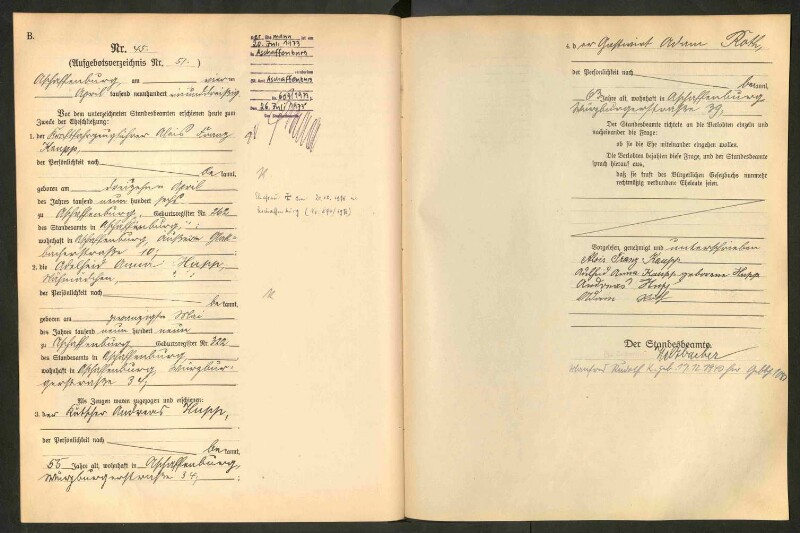 B.
Nr. 45.
(Aufgebotsverzeichnis Nr. 51.)
Aschaffenburg, am vier-
April tausend neunhundert neununddreißig
Vor dem unterzeichneten Standesbeamten erschienen heute zum
Zwecke der Eheschließung:
1. der Kraftfahrzeugführer Alois Franz
Kaupp,
der Persönlichkeit nach
bekannt,
geboren am dreizehn April
des Jahres tausend neun hundert sechs
zu Aschaffenburg, Geburtsregister Nr. 262
des Standesamts in Aschaffenburg;
wohnhaft in Aschaffenburg, äußere Glat-
bacherstraße 10;
2. die Adelheid Anna Hupp,
der Persönlichkeit nach
bekannt,
geboren am Mai
des Jahres tausend neun hundert neun
zu Aschaffenburg, Geburtsregister Nr. 322
des Standesamts in Aschaffenburg
wohnhaft in Aschaffenburg, Würzbur-
gerstraße 34;
Als Zeugen waren zugezogen und erschienen:
3. der Kutscher Andreas Hupp,
der Persönlichkeit nach
bekannt,
55 Jahre alt, wohnhaft in Aschaffenburg,
Würzburgerstraße 34;
20. Juli 1973
in Aschaffenburg
Aschaffenburg
Nr. 609/1973
den 26. Juli 1973
Der Standesbeamte
4. der Gastwirt Adam Roth,
der Persönlichkeit nach
bekannt,
63 Jahre alt, wohnhaft in Aschaffenburg
Würzburgerstraße 39;
Der Standesbeamte richtete an die Verlobten einzeln und
nacheinander die Frage:
ob sie die Ehe miteinander eingehen wollen.
Die Verlobten bejahten diese Frage, und der Standesbeamte
sprach hierauf aus,
daß sie kraft des Bürgerlichen Gesetzbuchs nunmehr
rechtmäßig verbundene Eheleute seien.
Vorgelesen, genehmigt und unterschrieben
Alois Franz Kaupp
Anna Kaupp geborene Hupp
Andreas Hupp
Adam Roth
Der Standesbeamte
Manfred Rudolf K. geb. 17.12.1940